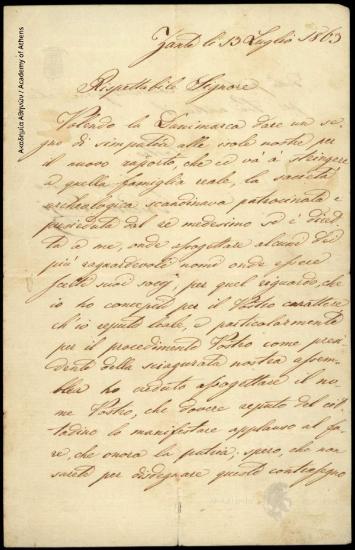 Zante li 13 Luglio 1863
Rispettabile Signore
Volendo la Danimarca dare un se-
gno di simpatia alle isole nostre per
il nuovo rapporto, che ce va à stringere
a quella famiglia reale, la società
archeologica scandinava patrocinata e
presieduta dal re medesimo si è diret-
ta a me, onde progettare alcuni dei
più ragguardevoli nomi onde essere
fatti suoi socj; per quel riguardo, che
io ho concepito per il Vostro carattere
ch'io reputo leale, e particolarmente
per il procedimento Vostro come presi-
dente della sciagurata nostra assem-
blea ho creduto progettare il no-
me Vostro, che dovere reputo del cit-
tadino lo manifestare applauso al fa-
re, che onora la patria; spero, che non
sarete per disdegnare questo contrassegno
Ακαδημία Αθηνών / Academy of Athens